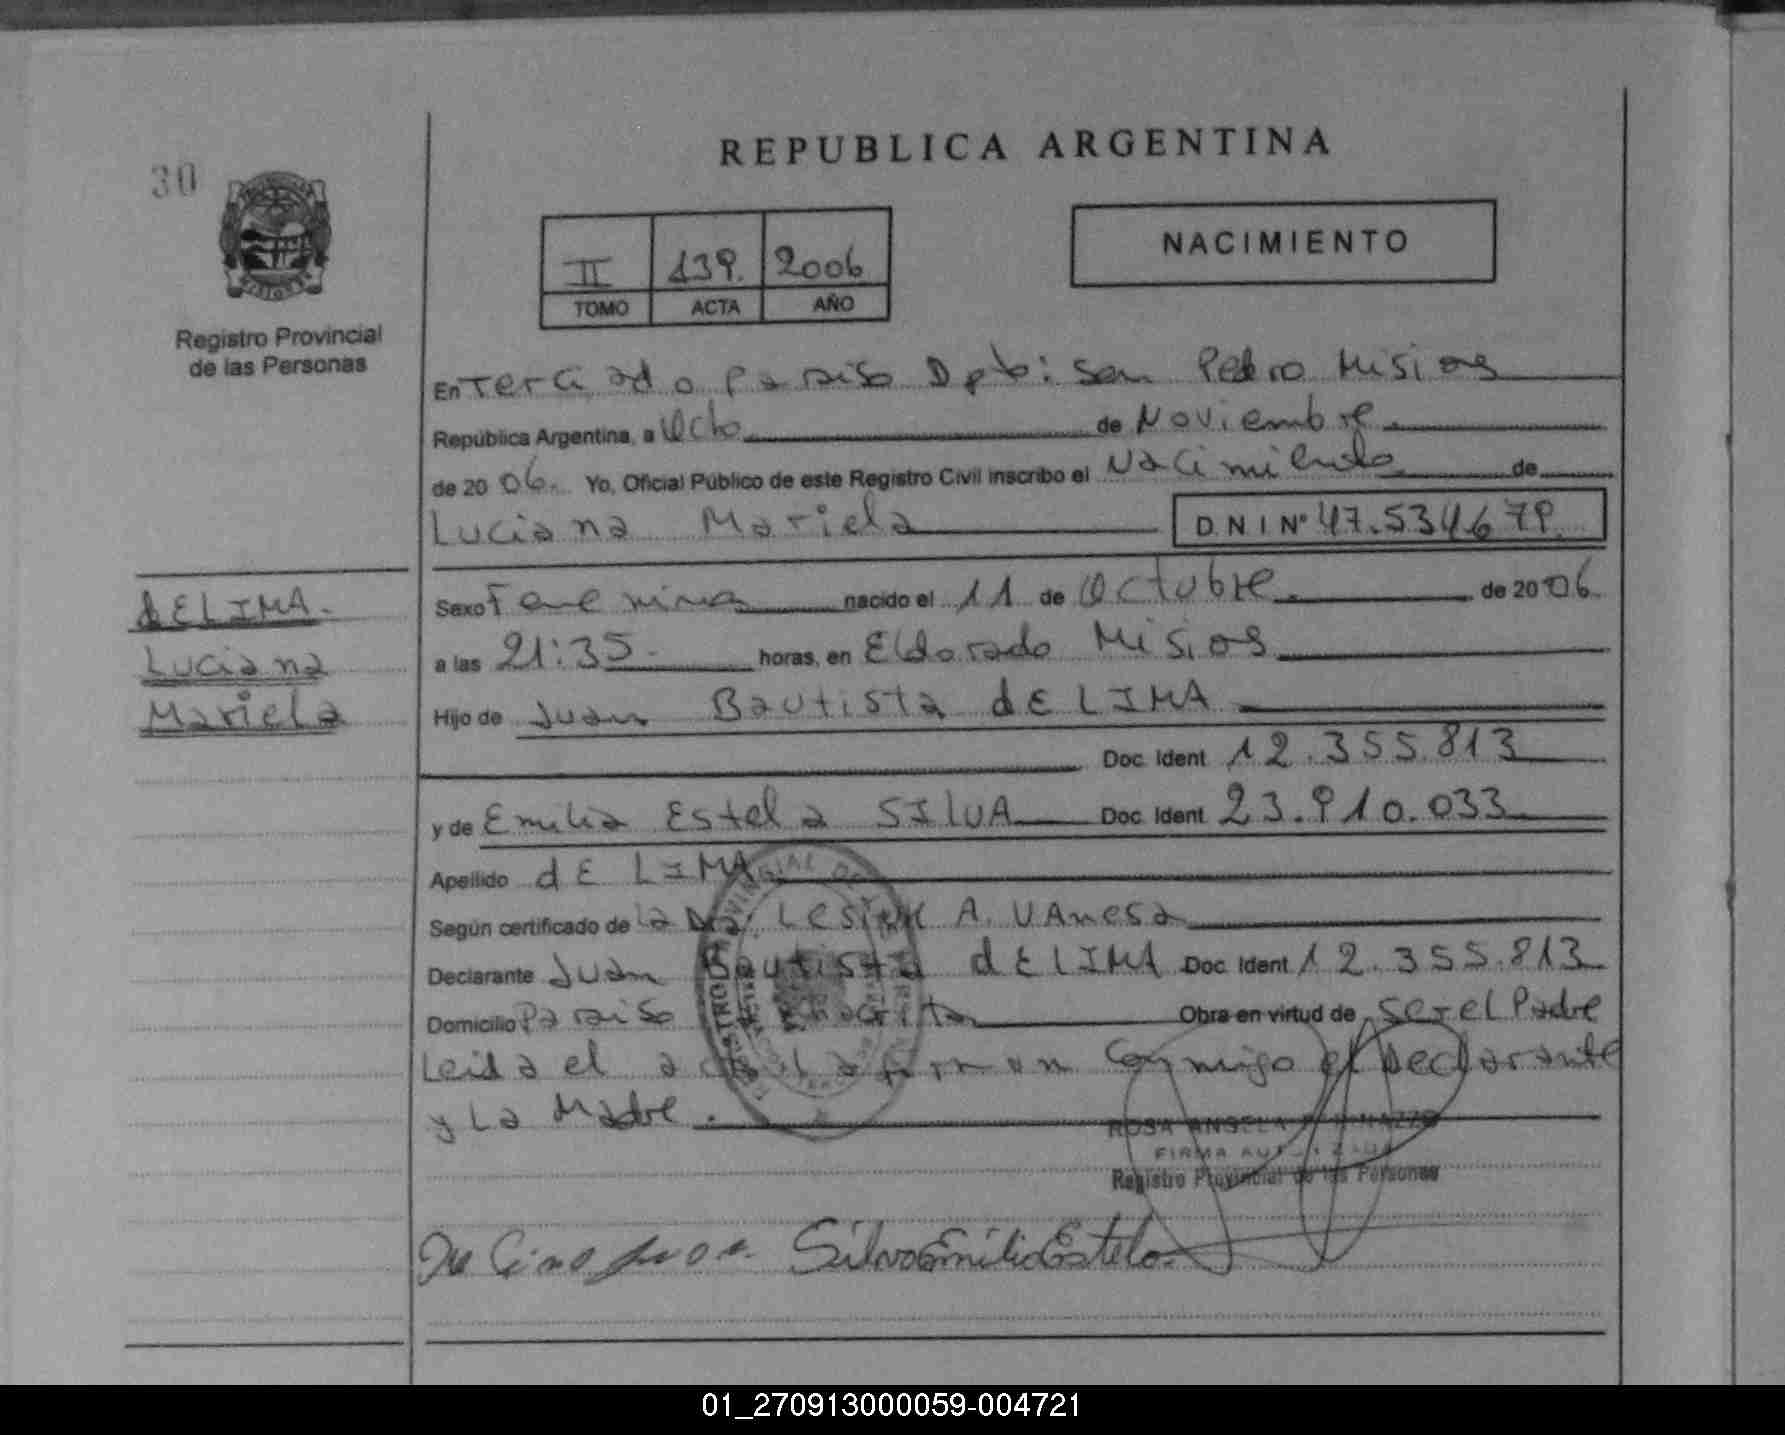 30
REPUBLICA ARGENTINA
II 139. 2006
TOMO ACTA AÑO
NACIMIENTO
Registro Provincial
de las Personas
En Terciado paraiso Dpto: San Pedro Misiones
República Argentina, a Ocho de Noviembre.
de 20 06. Yo, Oficial Público de este Registro Civil inscribo el Nacimiento de
Luciana Mariela D.N.I Nº 47.534.679.
dE LIMA.
Luciana
Mariela
Sexo Femenino nacido el 11 de Octubre. de 20 06.
a las 21:35. horas, en Eldorado Misiones
Hijo de Juan Bautista dE LIMA
Doc. Ident. 12.355.813
y de Emilia Estela SILVA Doc. Ident. 23.910.033
Apellido dE LIMA
Según certificado de la Dra. A. VAnesa
Declarante Juan Bautista dE LIMA Doc. Ident. 12.355.813
Domicilio Paraiso Obra en virtud de Ser el Padre
Leida el acta La firman Conmigo el Declarante
y La Madre.
ROSA ANGELA
FIRMA AUTORIZADA
Registro Provincial de las Personas
De Lima Juan. Silva Emilia Estela
01_270913000059-004721